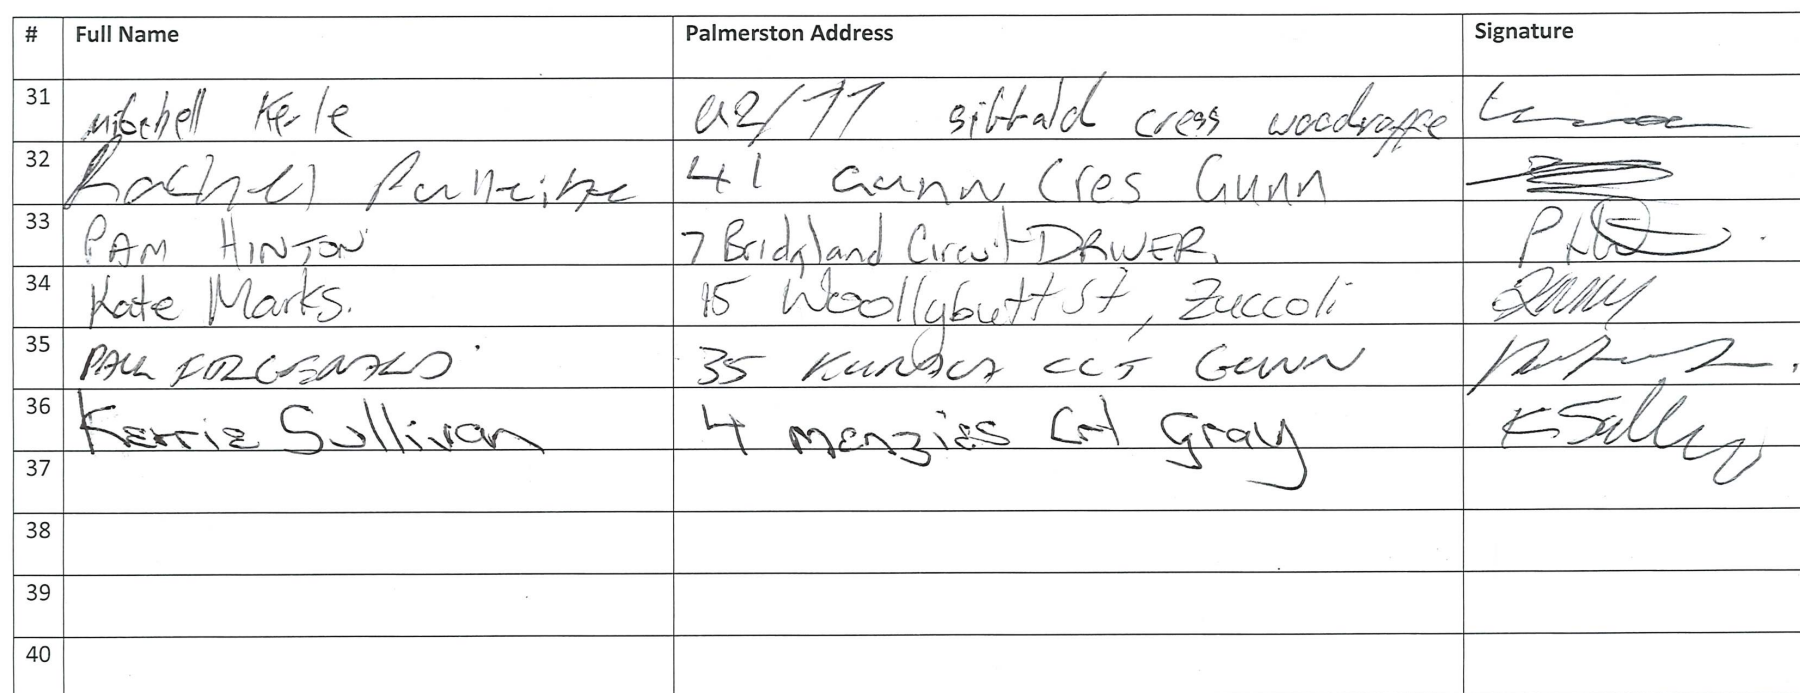 # Full Name Palmerston Address Signature
31 mitchell Kerle U2/11 sibbald cress woodroffe
32 Rachel 41 Gunn Cres Gunn
33 PAM HINTON 7 Bridgland Circuit DRIVER.
34 Kate Marks. 15 Woollybutt St, Zuccoli
35 PAUL FITZGERALD 35 CCT GUNN
36 Kerrie Sullivan 4 Menzies Crt Gray K Sulliv
37
38
39
40